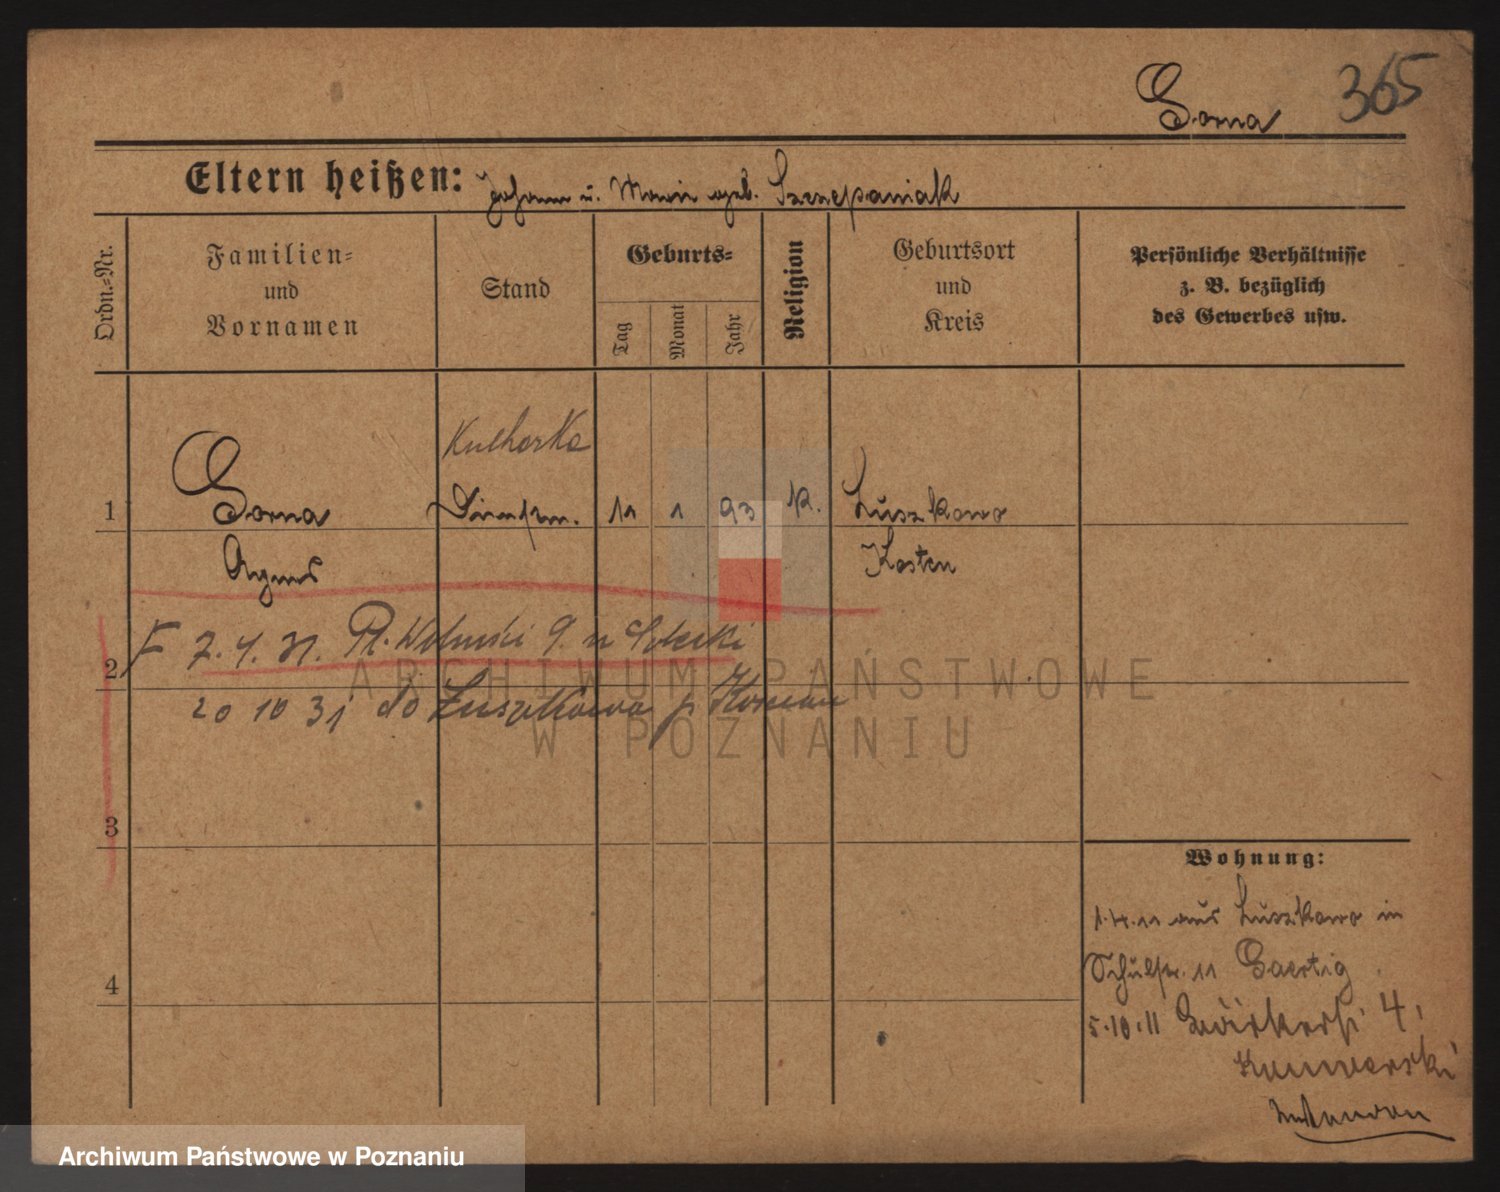 365
Sorna
Eltern heißen: Johann u. Marie geb. Szczepaniak
Ordn.-Nr.
Familien-
und
Vornamen
Stand
Geburts-
Tag
Monat
Jahr
Religion
Geburtsort
und
Kreis
Persönliche Verhältnisse
z. B. bezüglich
des Gewerbes usw.
Kucharka
1 Sorna 11 1 93 K. Luszkowo
Agnes Kosten
2 7. 4. 31. Pl. Wolności 9.
20 10 31 do Luszkowa p Kościan
3
4
Wohnung:
aus Luszkowo in
Schulstr. 11
5.10.11 4,
ARCHIWUM PAŃSTWOWE
W POZNANIU
Archiwum Państwowe w Poznaniu